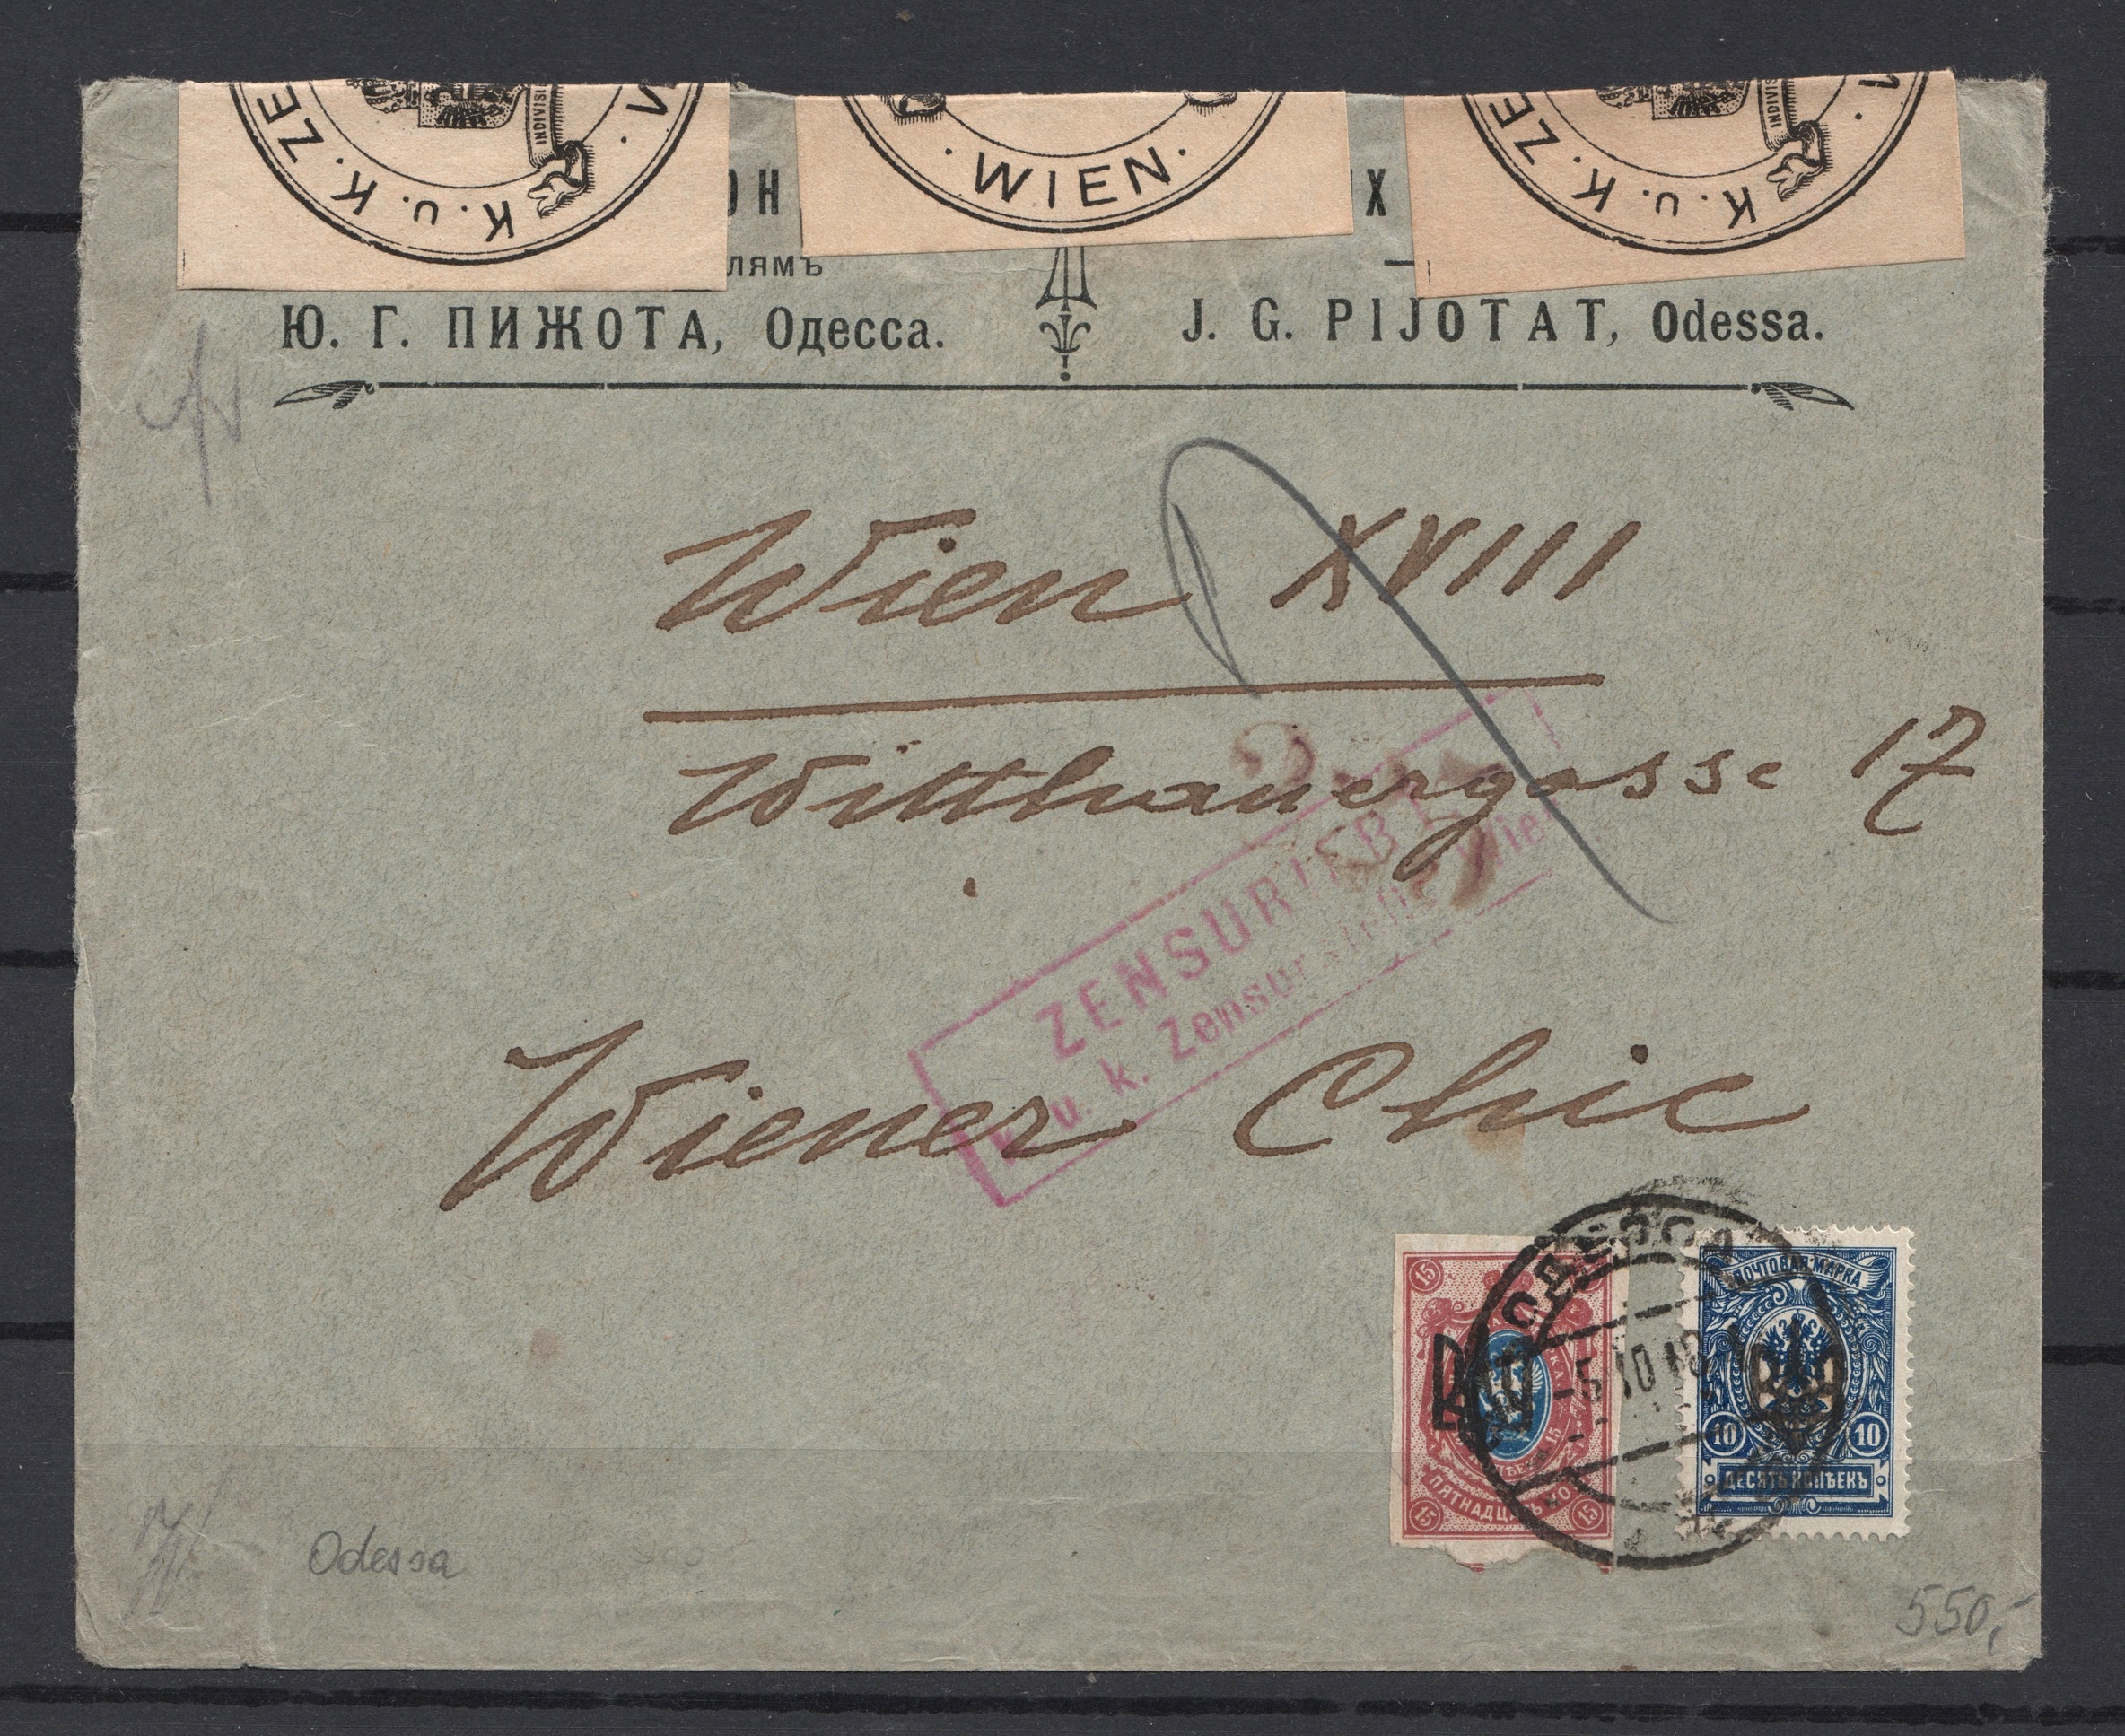 K. u. K. ZE
INDIVISI
· WIEN ·
K. u. K. ZE
INDIVISI
ОН
Х
лямъ
Ю. Г. ПИЖОТА, Одесса.
J. G. PIJOTAT, Odessa.
Wien XVIII
Witthauergasse 17
ZENSURIERT
u. k. Zensurstelle Wie
Wiener Chic
ОДЕССА
-5 10 18
15
15 15
ПЯТНАДЦ
ПОЧТОВАЯ МАРКА
10 10
ДЕСЯТЬ КОПѢЕКЪ
Odessa
550,-